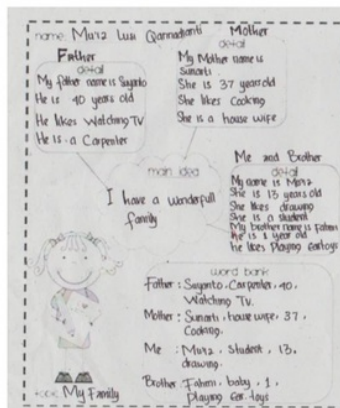 name: Murz Lusi Qannadianti
Father
detail
My father name is Suyanto
He is 40 years old
He likes Watching TV
He is a Carpenter
Mother
detail
My Mother name is
Sunarti
She is 37 years old
She likes Cooking
She is a house wife
main idea
I have a wonderfull
family
Me and Brother
detail
My name is Murz
She is 13 years old
She likes drawing
She is a student
My brother name is Fahmi
he is 1 year old
he likes Playing car toys
word bank
Father : Suyanto, Carpenter, 40,
Watching TV.
Mother : Sunarti, house wife, 37,
Cooking.
Me : Murz, student, 13,
drawing.
Brother : Fahmi, baby, 1,
Playing car toys
My Family